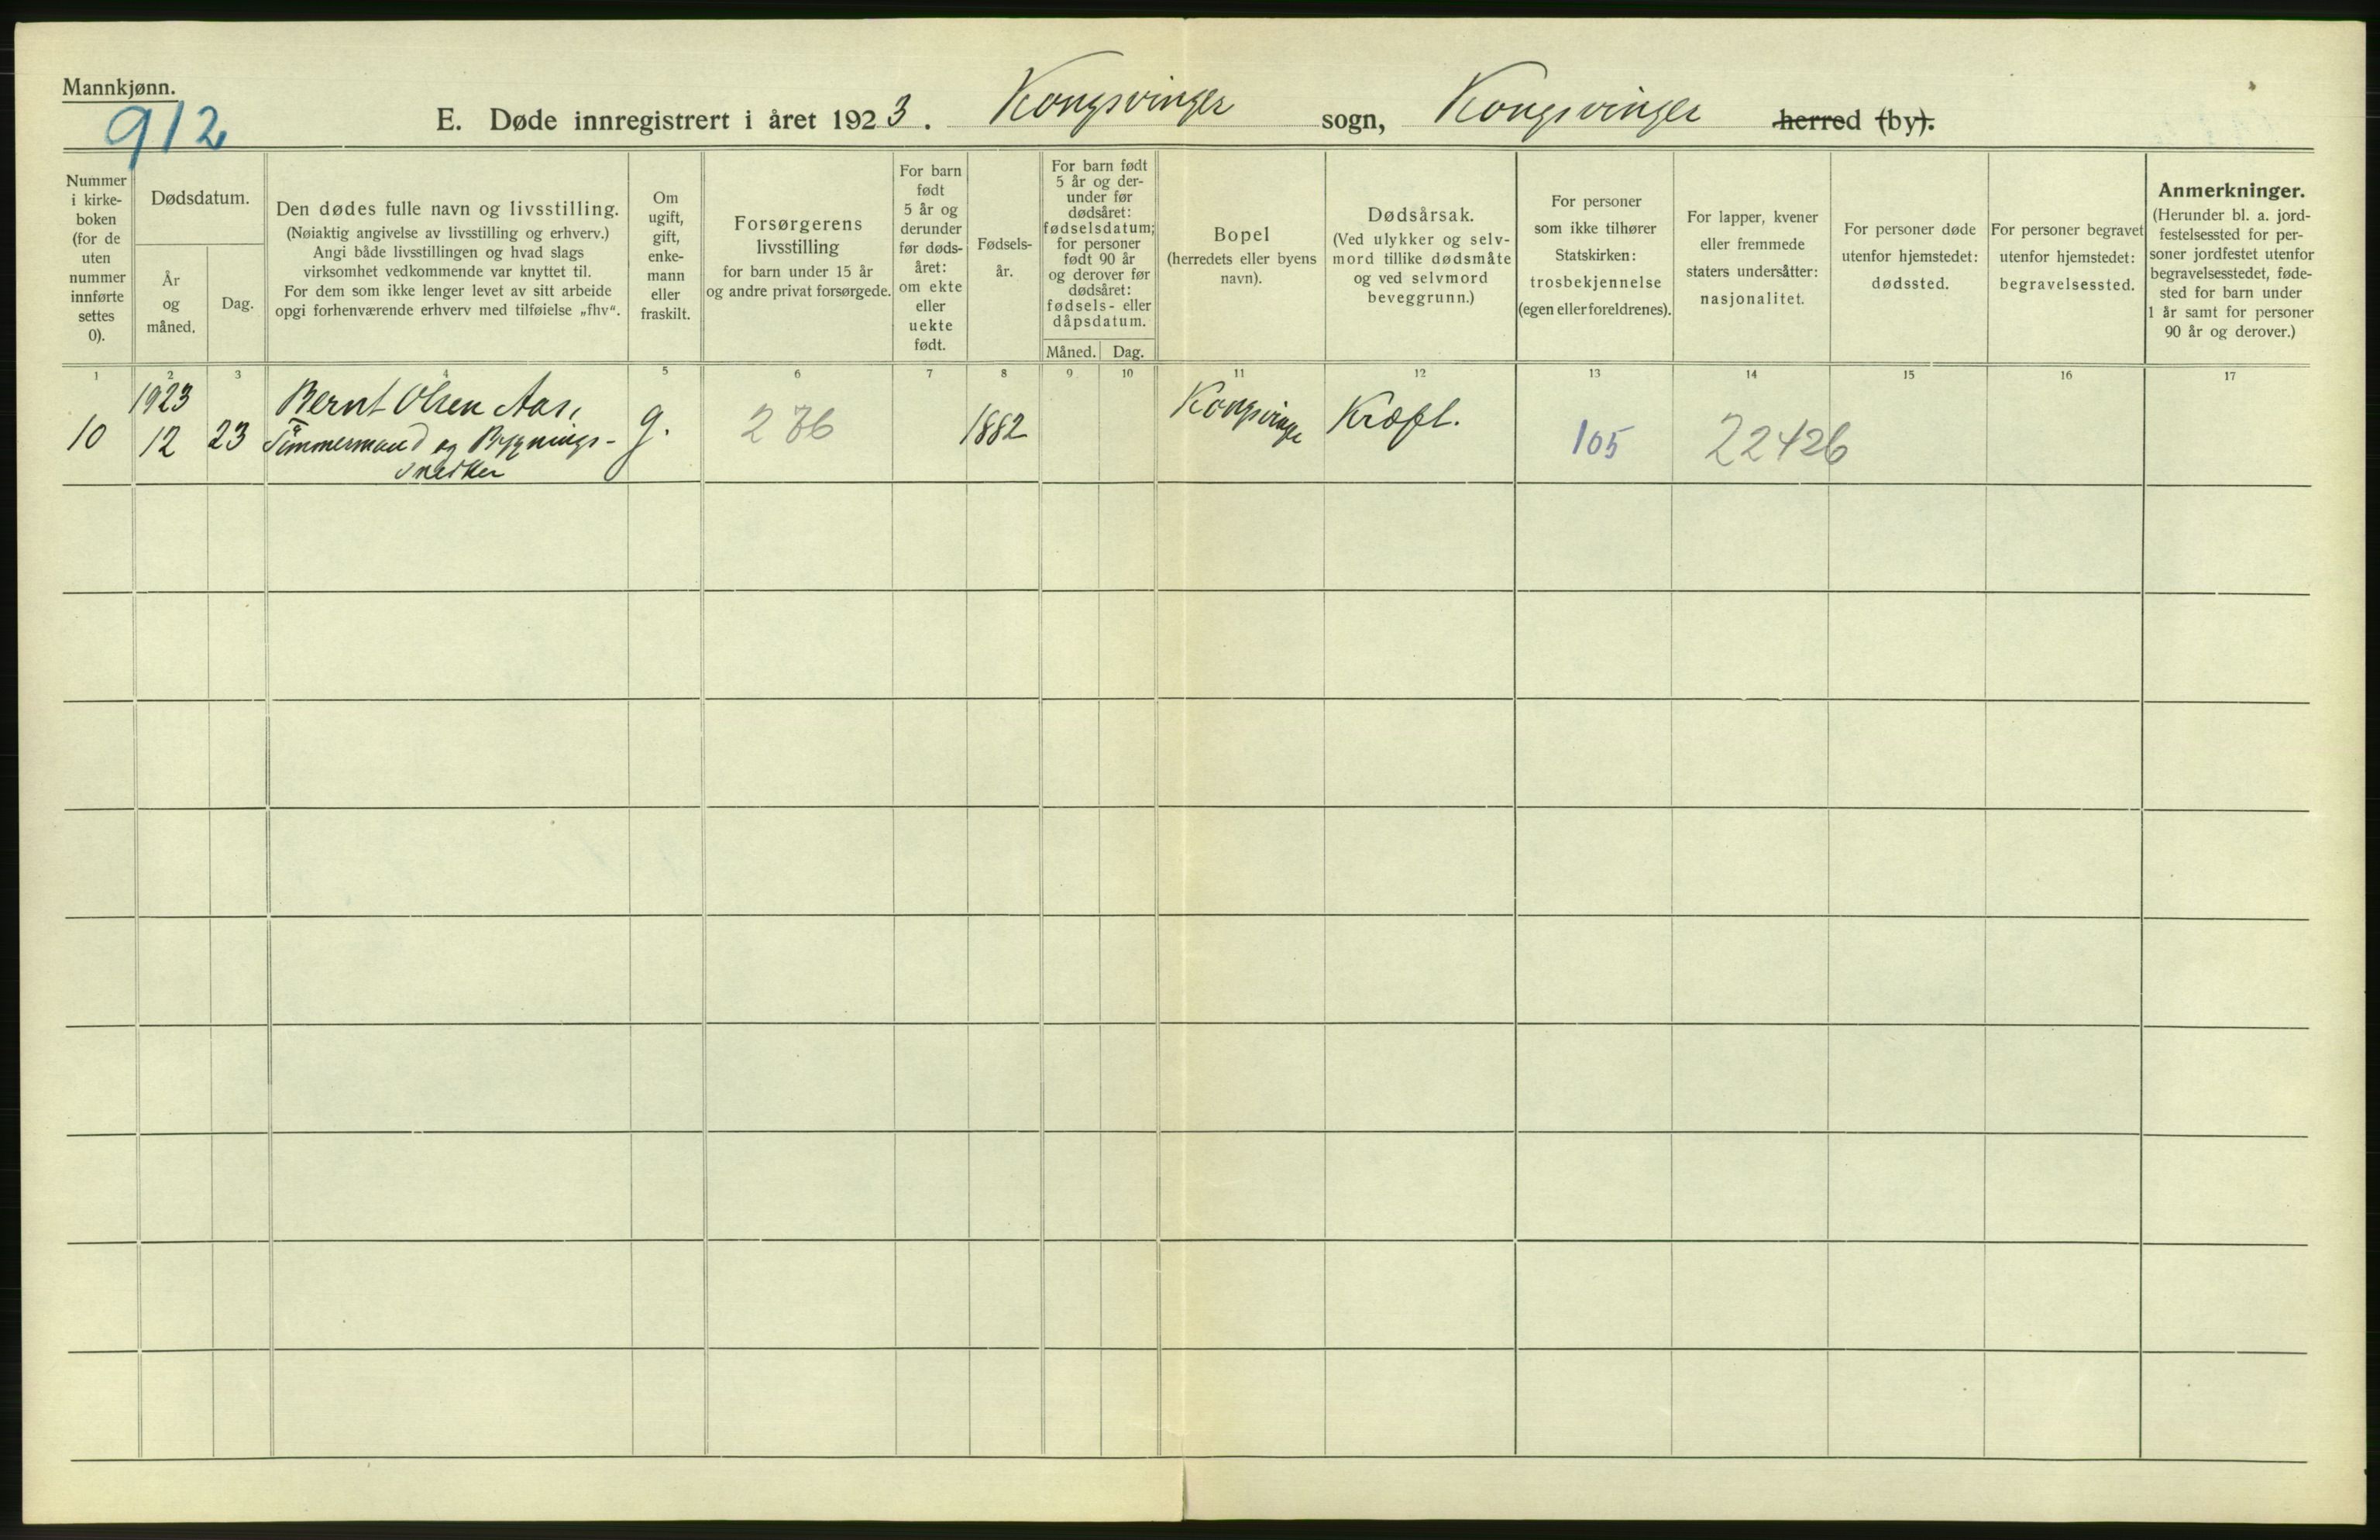 Mannkjønn.
912
E. Døde innregistrert i året 1923. Kongsvinger sogn, Kongsvinger herred (by).
Nummer
i kirke-
boken
(for de
uten
nummer
innførte
settes
0).
Dødsdatum.
År
og
måned.
Dag.
Den dødes fulle navn og livsstilling.
(Nøiaktig angivelse av livsstilling og erhverv.)
Angi både livsstillingen og hvad slags
virksomhet vedkommende var knyttet til.
For dem som ikke lenger levet av sitt arbeide
opgi forhenværende erhverv med tilføielse „fhv“.
Om
ugift,
gift,
enke-
mann
eller
fraskilt.
Forsørgerens
livsstilling
for barn under 15 år
og andre privat forsørgede.
For barn
født
5 år og
derunder
før døds-
året:
om ekte
eller
uekte
født.
Fødsels-
år.
For barn født
5 år og der-
under før
dødsåret:
fødselsdatum;
for personer
født 90 år
og derover før
dødsåret:
fødsels- eller
dåpsdatum.
Måned. Dag.
Bopel
(herredets eller byens
navn).
Dødsårsak.
(Ved ulykker og selv-
mord tillike dødsmåte
og ved selvmord
beveggrunn.)
For personer
som ikke tilhører
Statskirken:
trosbekjennelse
(egen eller foreldrenes).
For lapper, kvener
eller fremmede
staters undersåtter:
nasjonalitet.
For personer døde
utenfor hjemstedet:
dødssted.
For personer begravet
utenfor hjemstedet:
begravelsessted.
Anmerkninger.
(Herunder bl. a. jord-
festelsessted for per-
soner jordfestet utenfor
begravelsesstedet, føde-
sted for barn under
1 år samt for personer
90 år og derover.)
1 2 3 4 5 6 7 8 9 10 11 12 13 14 15 16 17
10
1923
12
23
Bernt Olsen Aas,
Tømmermand og Bygnings-
snedker
g.
276
1882
Kongsvinger
Kræft.
105
22426